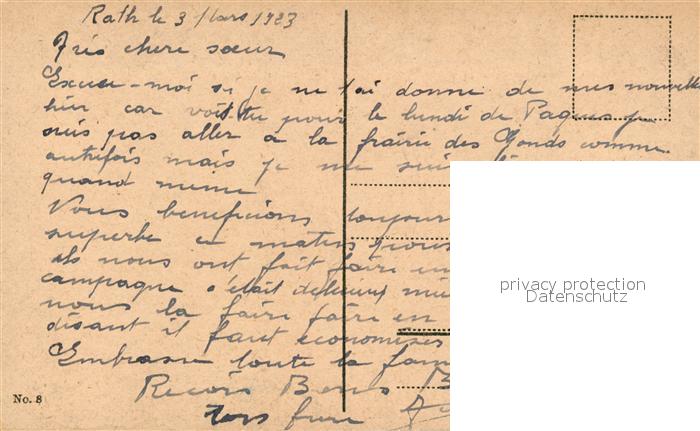 Rath le 3 Mars 1923
Très chere sœur
Excuse-moi si je ne t'ai donne de mes nouvelles
hier car vois tu pour le lundi de Paques je
suis pas aller a la prairie des Gonds comme
autrefois mais je me suis
quand meme
Vous beneficions toujour
superbe ce matin
ils nous ont fait faire un
campagne c'était
nous la faire faire en
disant il faut economiser
Embrasse toute la fam
Recois Bons B
ton frere
No. 8
privacy protection
Datenschutz